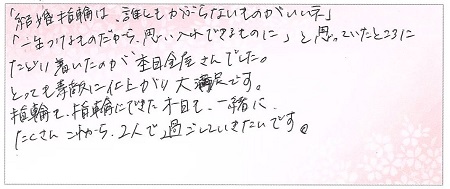 「結婚指輪は、誰ともかぶらないものがいいネ」
「一生つけるものだから、思い入れできるものに」と思っていたところに
たどり着いたのが杢目金屋さんでした。
とっても素敵に仕上がり大満足です。
指輪も、指輪にできた木目も、一緒に
たくさんこれから、2人で過ごしていきたいです。